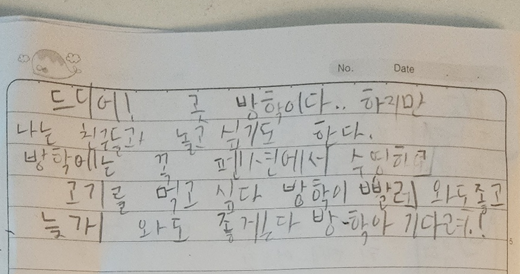 No. Date
드디어! 곧 방학이다.. 하지만
나는 친구들과 놀고 싶기도 하다.
방학에는 꼭 펜션에서 수영하고
고기를 먹고 싶다 방학이 빨리 와도좋고
늦게 와도 좋겠다 방학아 기다려.!